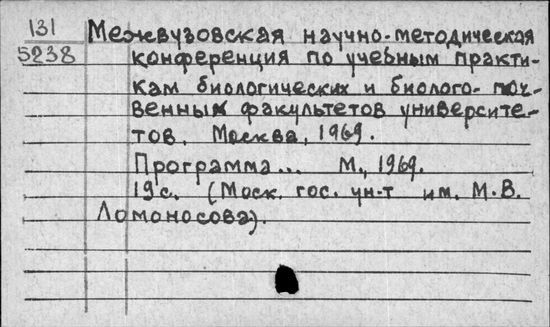 131 Межвузовская научно-методическая
5238 конференция по учебным практи-
кам биологических и биолого-поч-
венных факультетов университе-
тов. Москва, 1969.
Программа... М., 1969.
19с. (Моск. гос. ун-т им. М.В.
Ломоносова).